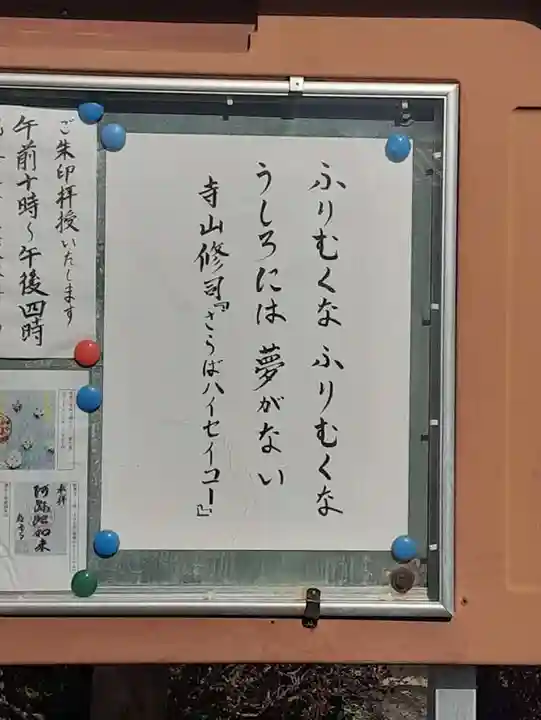 ふりむくな ふりむくな
うしろには 夢がない
寺山修司『さらばハイセイコー』
ご朱印拝授いたします
午前十時〜午後四時
奉拝